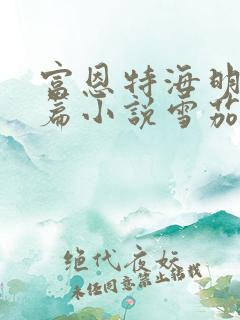 富恩特海明
篇小说雪茄
绝代夜妖
未经同意禁止转载